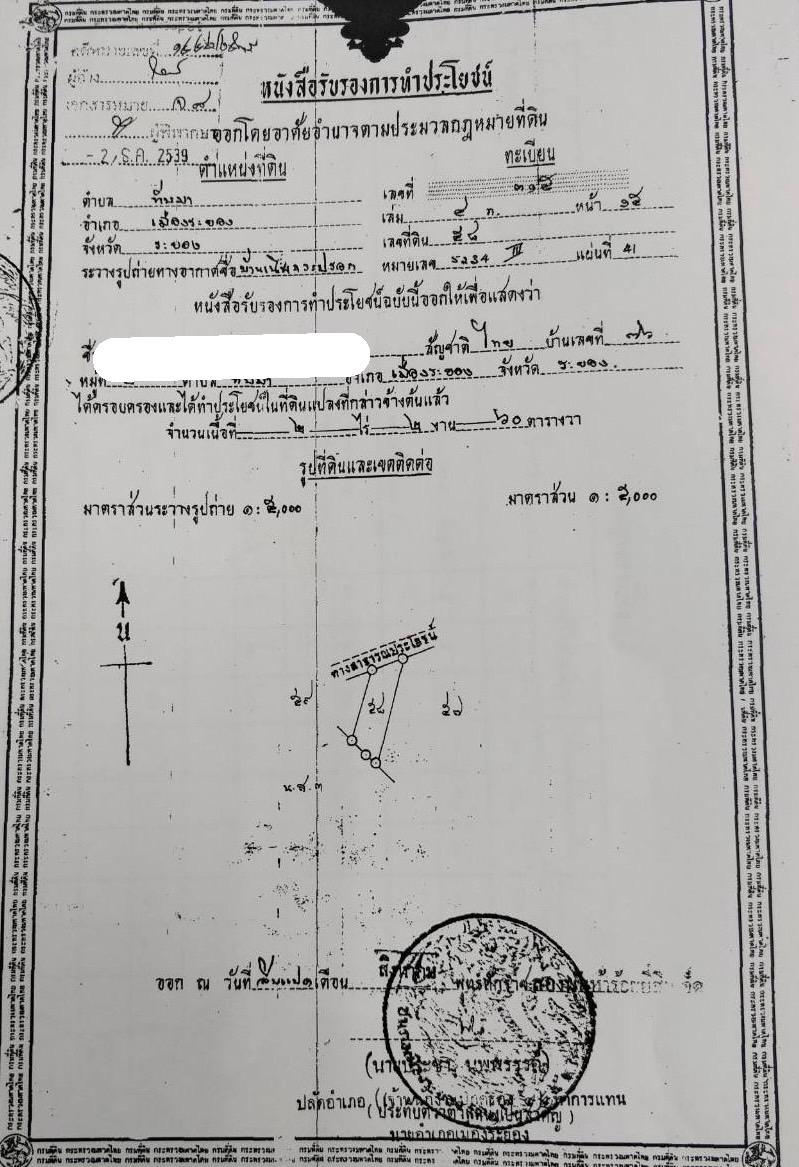 คดีหมายเลขที่
ผู้อ้าง
เอกสารหมาย
ผู้พิพากษา
- 2 ธ.ค. 2539
หนังสือรับรองการทำประโยชน์
ออกโดยอาศัยอำนาจตามประมวลกฎหมายที่ดิน
ตำแหน่งที่ดิน
ทะเบียน
ตำบล ทับมา
เลขที่ ๓๑๕
อำเภอ เมืองระยอง
เล่ม ๔ ก. หน้า ๑๕
จังหวัด ระยอง
เลขที่ดิน ๕๘
ระวางรูปถ่ายทางอากาศชื่อ
หมายเลข 5234 III แผ่นที่ 41
หนังสือรับรองการทำประโยชน์ฉบับนี้ออกให้เพื่อแสดงว่า
สัญชาติ ไทย บ้านเลขที่
หมู่ที่ ตำบล ทับมา อำเภอ เมืองระยอง จังหวัด ระยอง.
ได้ครอบครองและได้ทำประโยชน์ในที่ดินแปลงที่กล่าวข้างต้นแล้ว
จำนวนเนื้อที่ ๒ ไร่ ๒ งาน ๖๐ ตารางวา
รูปที่ดินและเขตติดต่อ
มาตราส่วนระวางรูปถ่าย ๑ : ๕,๐๐๐
มาตราส่วน ๑ : ๕,๐๐๐
น
ทางสาธารณประโยชน์
๕๙
๕๘
๕๗
น.ส.๓
ออก ณ วันที่ สิบแปด เดือน สิงหาคม พุทธศักราช สองพันห้าร้อยยี่สิบ
ปลัดอำเภอ
(ประทับตราตำแหน่งเป็นสำคัญ)
นายอำเภอเมืองระยอง
กรมที่ดิน กระทรวงมหาดไทย กรมที่ดิน กระทรวงมหาดไทย